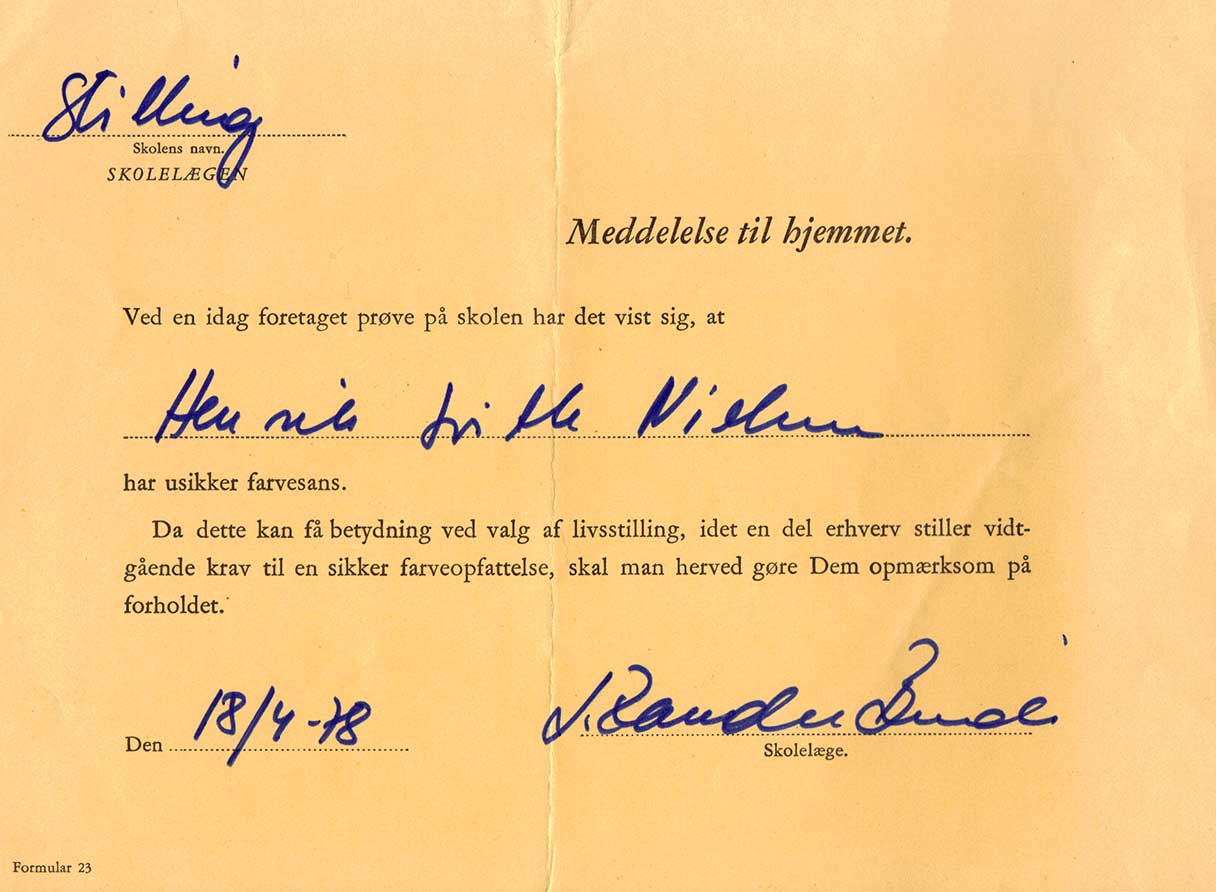 Stilling
Skolens navn.
SKOLELÆGEN
Meddelelse til hjemmet.
Ved en idag foretaget prøve på skolen har det vist sig, at
Henrik Nielsen
har usikker farvesans.
Da dette kan få betydning ved valg af livsstilling, idet en del erhverv stiller vidt-
gående krav til en sikker farveopfattelse, skal man herved gøre Dem opmærksom på
forholdet.
Den 18/4-78
Skolelæge.
Formular 23